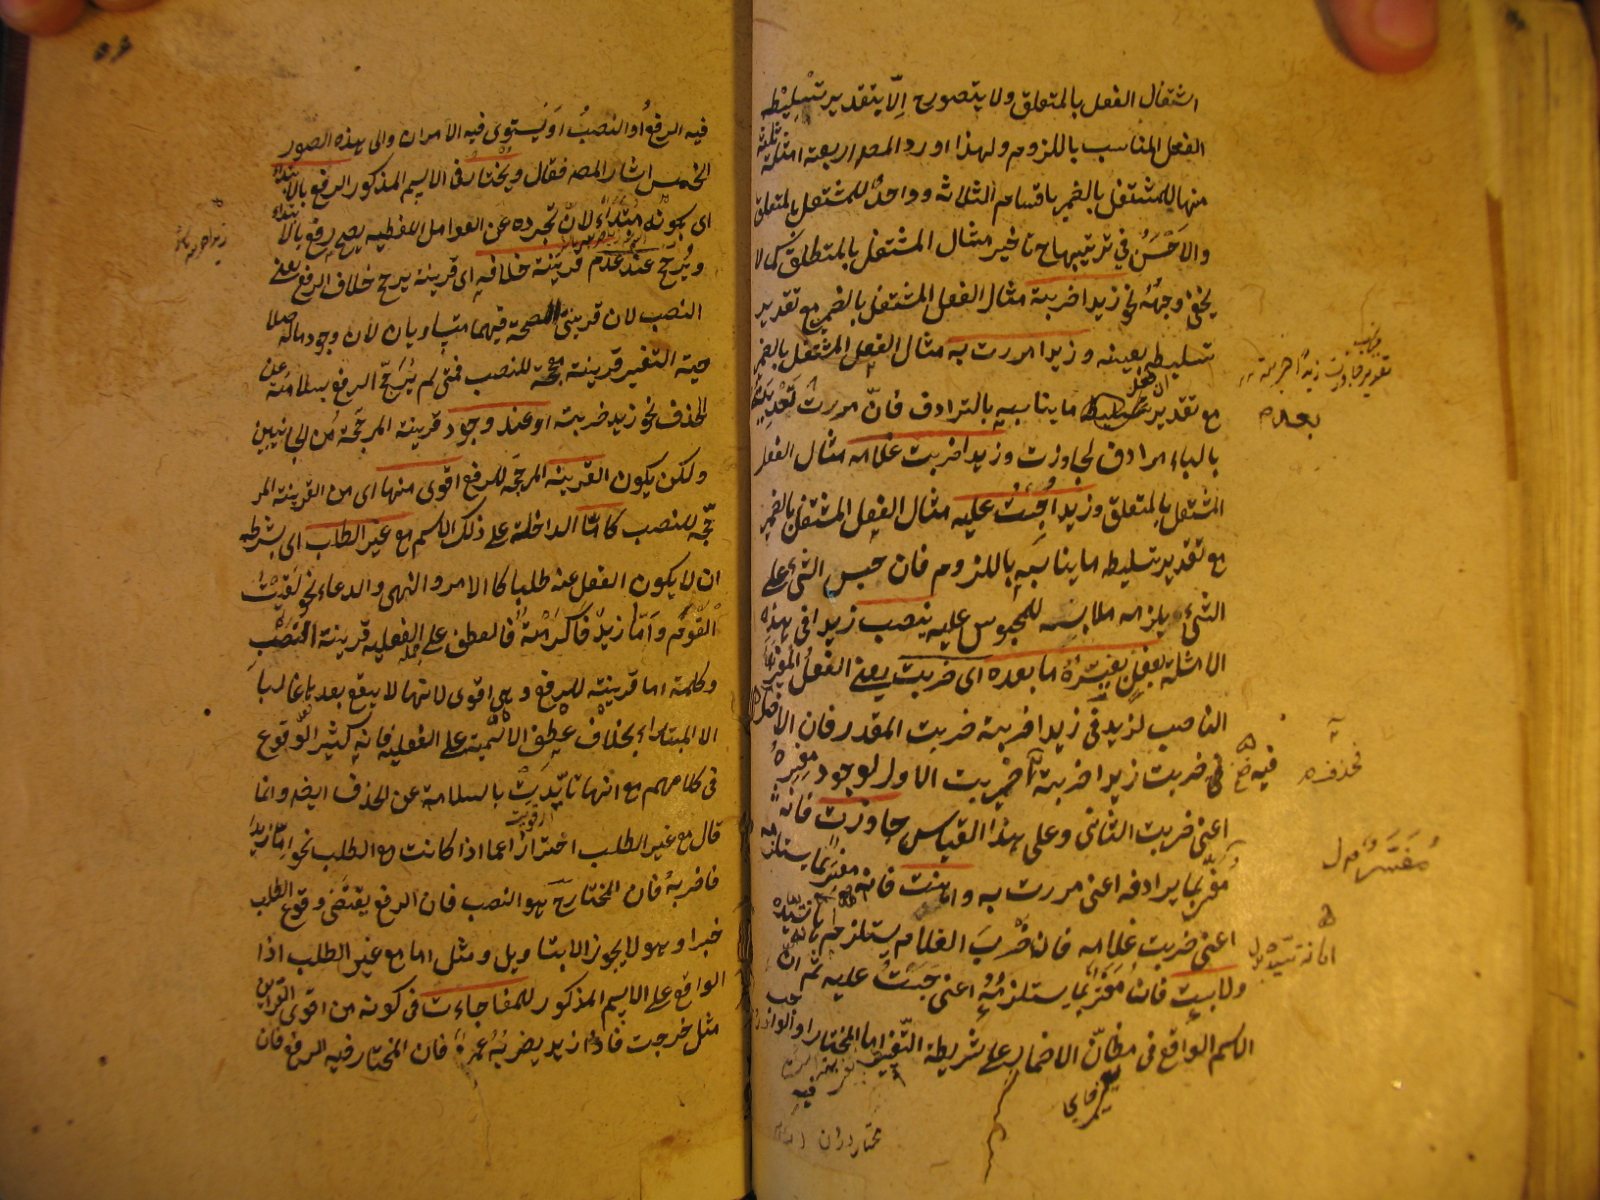 اشتغال الفعل بالمتعلق ولا يتصورح الّا بتقدير تسليطه
الفعل المناسب باللزوم ولهذا اورد المصه اربعة امثلة ثلثة
منها للمشتغل بالضمير باقسامه الثلاثة وواحدٌ للمشتغل بالمتعلق
والاَحْسَنُ في ترتيبها ح تاخير مثال المشتغل بالمتعلق كما لا
يخفى وجهُهُ نحو زيدا ضربته مثال الفعل المشتغل بالضمير مع تقدير
تسليطه بعينه وزيدا مررت به مثال الفعل المشتغل بالضمير
مع تقدير تسليط ما يناسبه بالترادف فانّ مررتُ بَعْدَ
بالباء مرادف لجاوزت وزيدا ضربت غلامه مثال الفعل
المشتغل بالمتعلق وزيدا حُبِسْتُ عليه مثال الفعل المشتغل بالضمير
مع تقدير تسليطه ما يناسبه باللزوم فان حبس الشئ على
الشئ يلزمه ملابسته للمحبوس عليه ينصب زيدا في هذه
الامثلة بفعلٍ يفسّرُهُ ما بعده اى ضربت يعنى الفعلُ المفسَّر
الناصب لزيد في زيدا ضربته ضربت المقدر فان الاصل
فيه ضربت زيدا ضربته ضربت الاول لوجود مفسِّرهُ
اعنى ضربت الثانى وعلى هذا القياس جاوزتُ فانّه
مفسَّر بما يرادفه اعنى مررت به واهنت فانه مفسَّر بما يستلزمه
اعنى ضربت غلامه فان ضَرْبَ الغلام يستلزم اهانة سيّده
ولابستُ فانّه مفسَّر بما يستلزمُهُ اعنى حبستُ عليه ثم انّ
الاسم الواقع في مظانّ الاضمار على شريطة التّفسير اما المختار او الواجب
نحذف
مُفَسَّرُ
اهانة سيّد
فيه
فيه الرفعُ او النصبُ او يستوى فيه الامران والى هذه الصور
الخمس اشار المصه فقال ويُختارُ في الاسم المذكور الرفع بالابتداء
اى بكونه مبتدأً لانّ تجرده عن العوامل اللفظيه يصحح رفع بالابتداء
ويُرجّح عند عدم قرينة خلافه اى قرينة يرجح خلاف الرفع يعنى
النصب لان قرينتى الصحة فيهما متساويان لان وجود ما له صلا
حية التفسير قرينة مصححة للنصب فمتى لم يُرجَّح الرفع بسلامته عن
الحذف نحو زيد ضربته او عند وجود قرينة المرجّحة من الجانبين
ولكن يكون القرينة المرجّحة للرفع اقوى منها اى من القرينة المر
جّحة للنصب كامّا الداخلة على ذلك الاسم مع غير الطلب اى بشرط
ان لا يكون الفعل عنه طلبا كالامر والنهى والدعاء نحو لَقِيْتُ
القومَ وامّا زيدٌ فاكرمته فالعطف على الفعليه قرينة النصب
وكلمة اما قرينة للرفع وهى اقوى لانها لا يقع بعدها غالبا
الا المبتداء بخلاف عطف الاسمية على الفعليه فانه كثير الوقوع
في كلامهم مع انها تأيّدت بالسلامة عن الحذف ايضا وانما
قال مع غير الطلب احترازا عما اذا كانت مع الطلب نحو امّا زيدا
فاضربهُ فان المختار ح هو النصب فان الرفع يقتضى وقوع الطلب
خبرا وهو لا يجوز الا بتاويل ومثل اما مع غير الطلب اذا
الواقع على الاسم المذكور للمفاجاءت في كونه من اقوى القراين
مثل خرجت فاذا زيد يضربُهُ عمرو فان المختار فيه الرفع فان